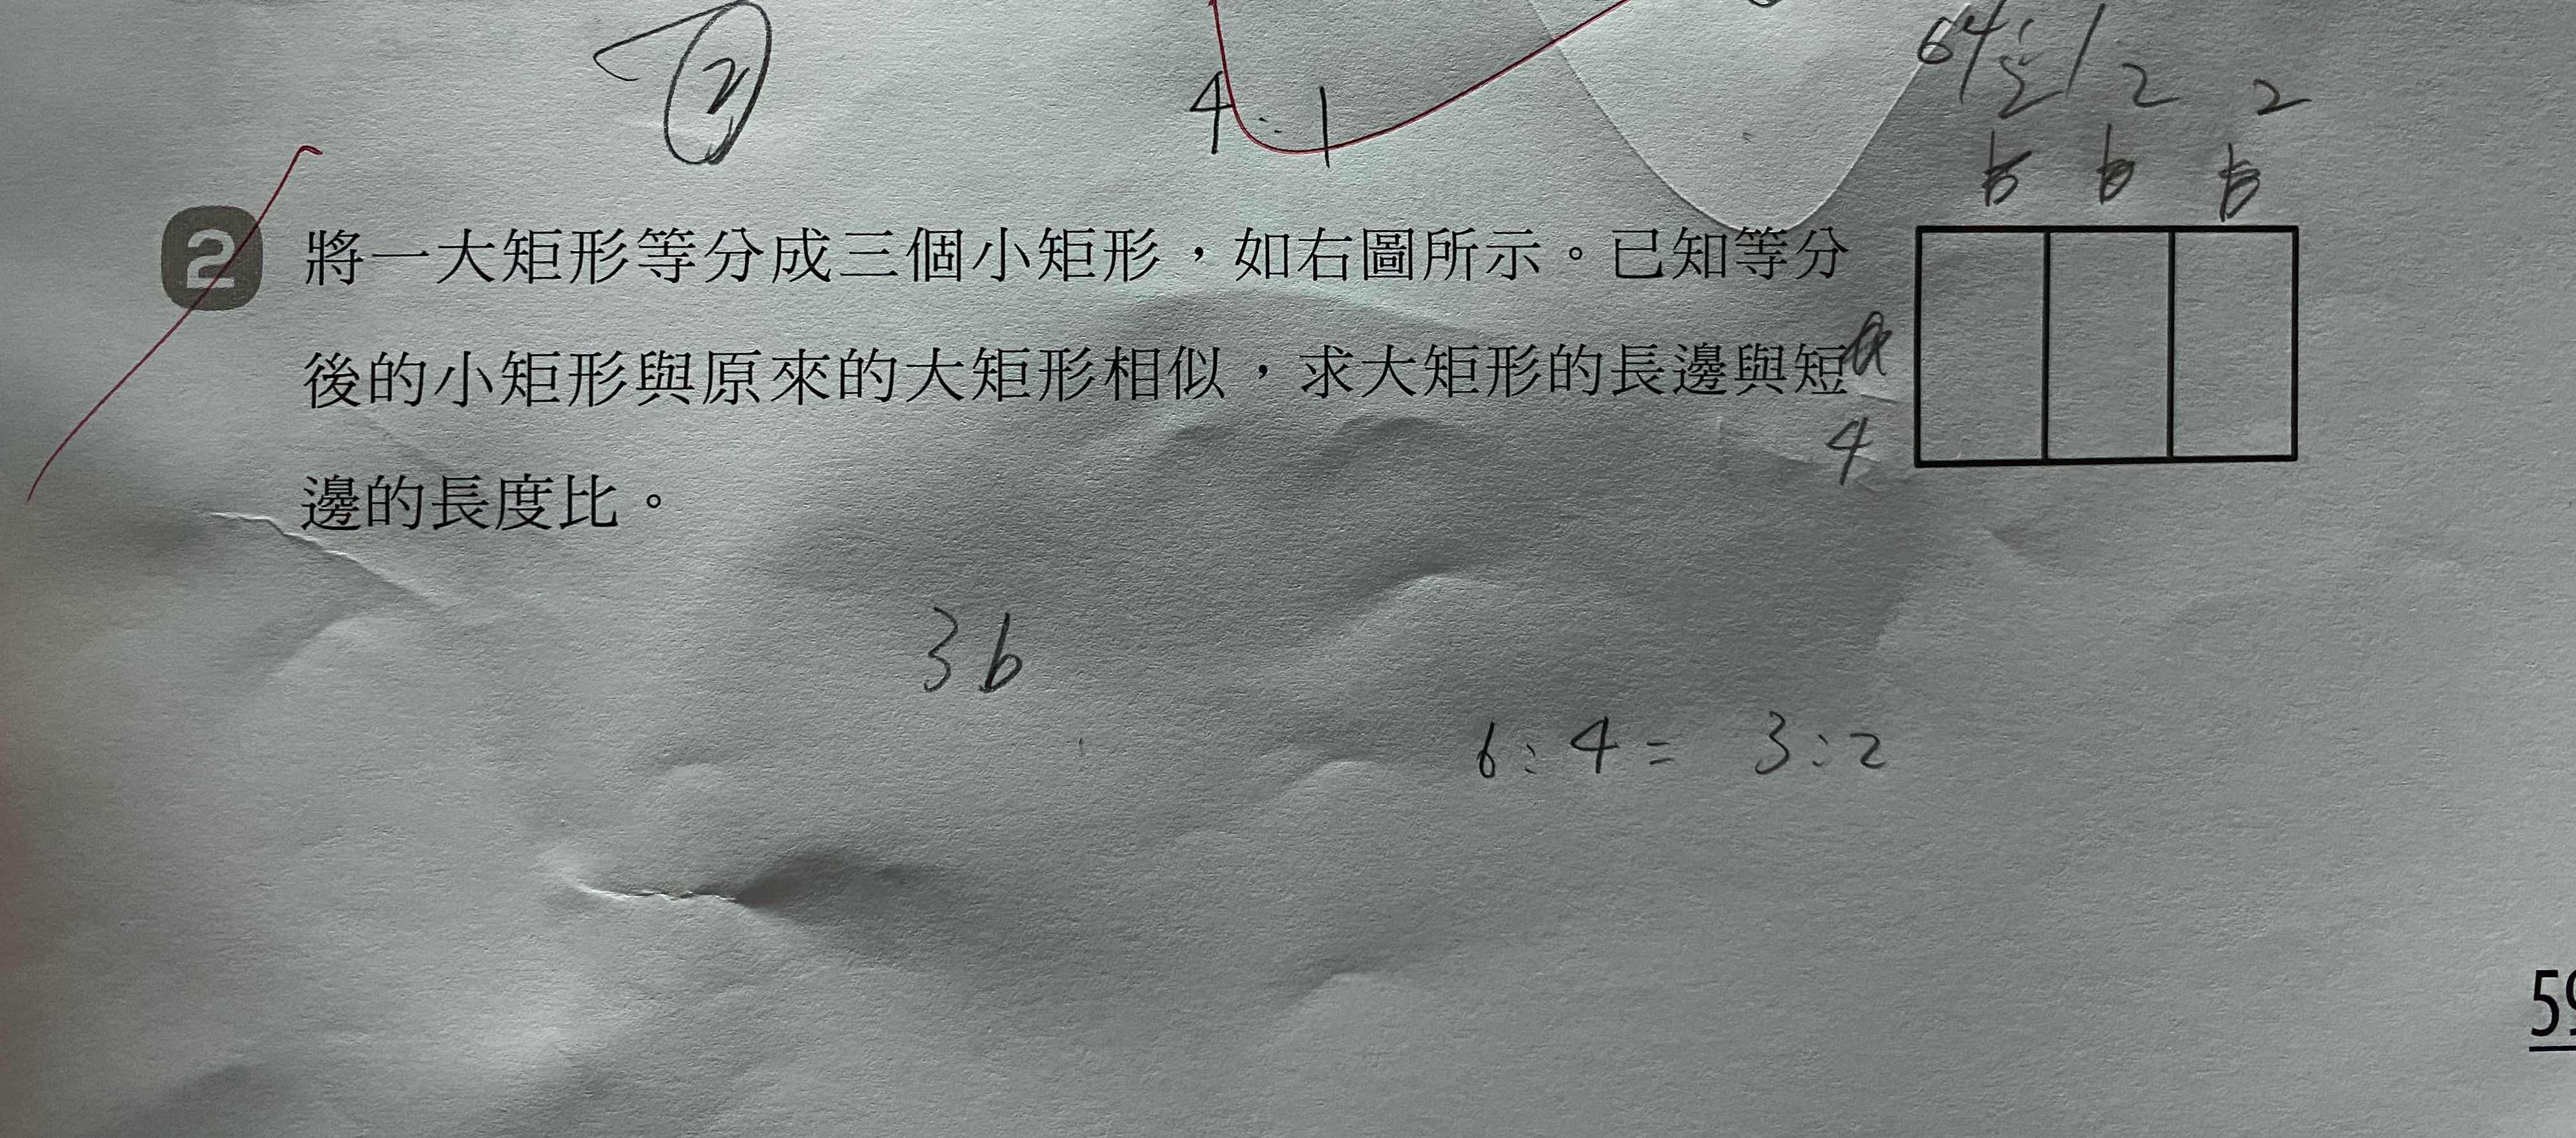 2
4:1
64:1
2 2 2
b b b
2 將一大矩形等分成三個小矩形，如右圖所示。已知等分
後的小矩形與原來的大矩形相似，求大矩形的長邊與短
邊的長度比。
a
4
3b
6:4= 3:2
59